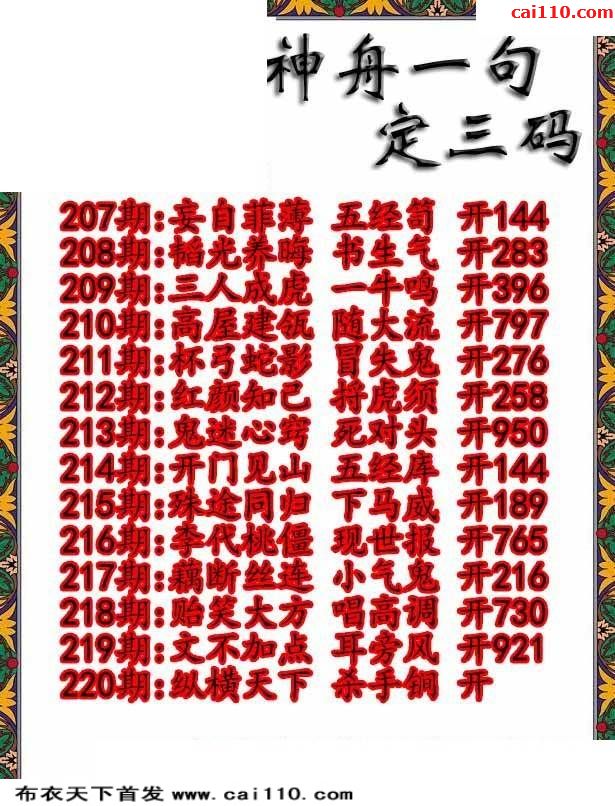 cai110.com
神舟一句
定三码
207期:妄自菲薄 五经笥 开144
208期:韬光养晦 书生气 开283
209期:三人成虎 一牛鸣 开396
210期:高屋建瓴 随大流 开797
211期:杯弓蛇影 冒失鬼 开276
212期:红颜知己 捋虎须 开258
213期:鬼迷心窍 死对头 开950
214期:开门见山 五经库 开144
215期:殊途同归 下马威 开189
216期:李代桃僵 现世报 开765
217期:藕断丝连 小气鬼 开216
218期:贻笑大方 唱高调 开730
219期:文不加点 耳旁风 开921
220期:纵横天下 杀手锏 开
布衣天下首发 www.cai110.com